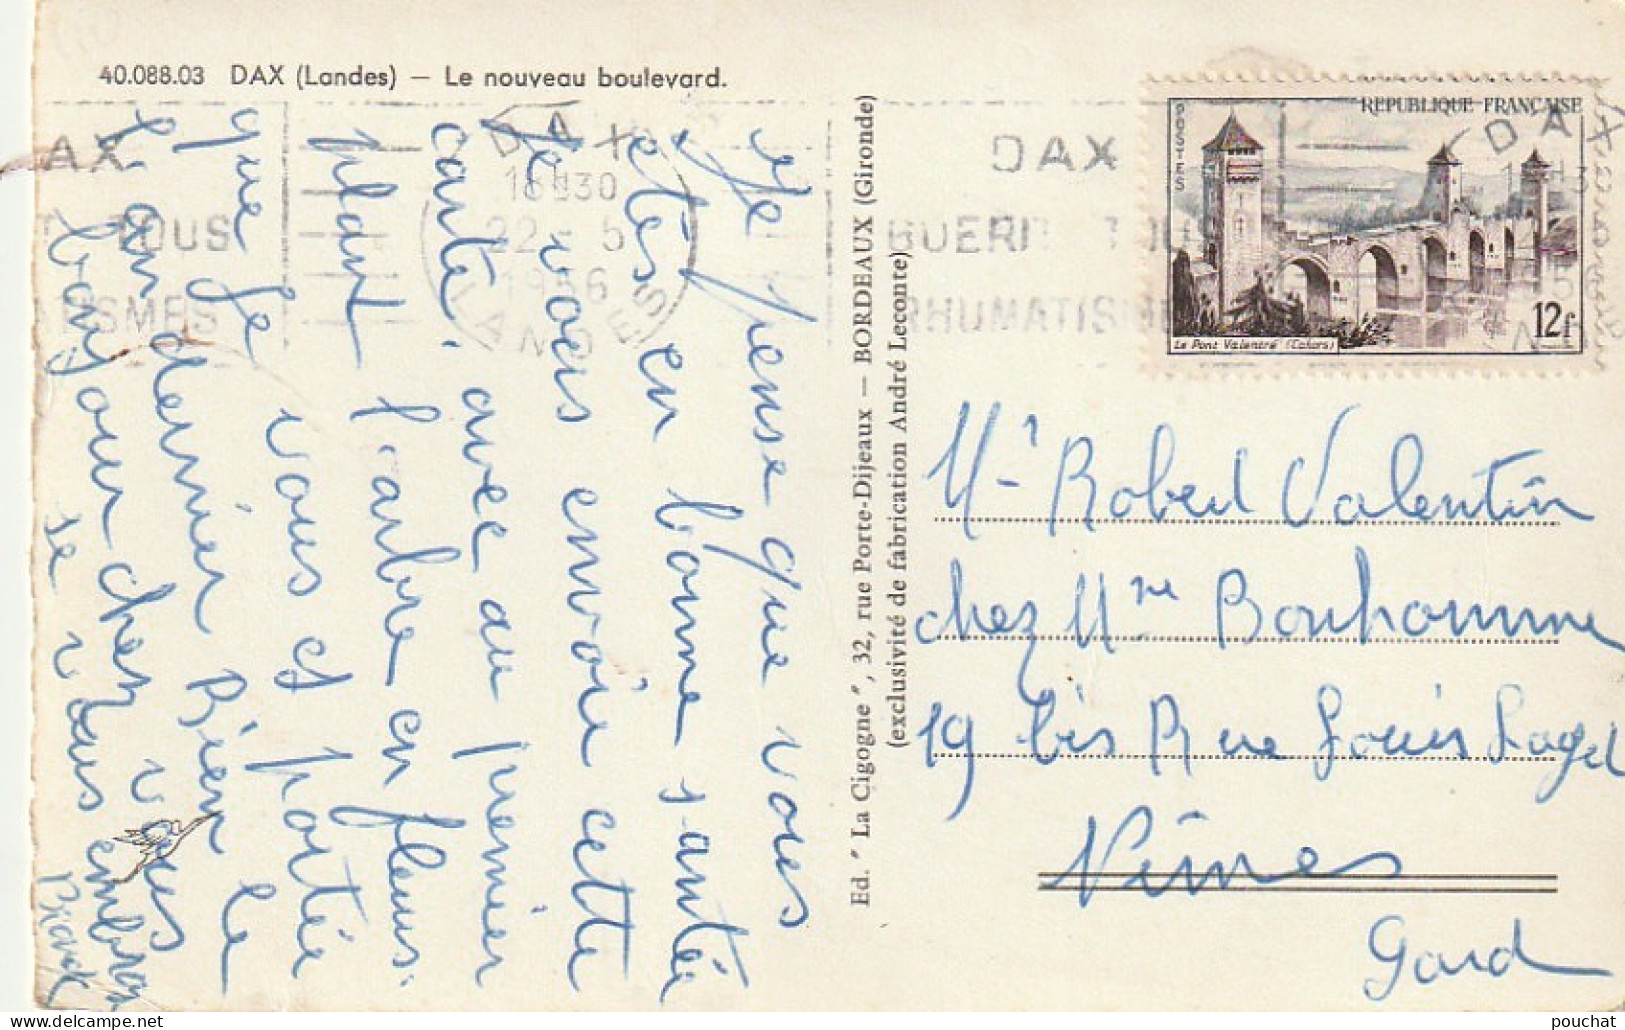 40.088.03 DAX (Landes) — Le nouveau boulevard.
Je pense que vous
etés en bonne santé
Je vous envoie cette
carte. avec au premier
plant l'arbre en fleurs.
que Je vous et portée
l'an dernier Bien le
bonjour chez vous
Je vous embrasse
Ed. "La Cigogne", 32, rue Porte-Dijeaux — BORDEAUX (Gironde)
(exclusivité de fabrication André Leconte)
DAX
16H30
22-5
1956
LANDES
DAX
GUERIT TOUS
RHUMATISMES
AX
TOUS
ISMES
REPUBLIQUE FRANÇAISE
POSTES
Le Pont Valentré (Cahors)
12f
DAX
Mr Robert Valentin
chez Mme Bonhomme
19 bis Rue Louis Laget
Nîmes
Gard
pouchat